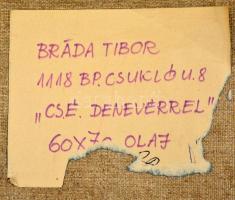 BRÁDA TIBOR
1118 BP. CSUKLÓ U. 8
„CSÉ. DENEVÉRREL"
60X70 OLAJ